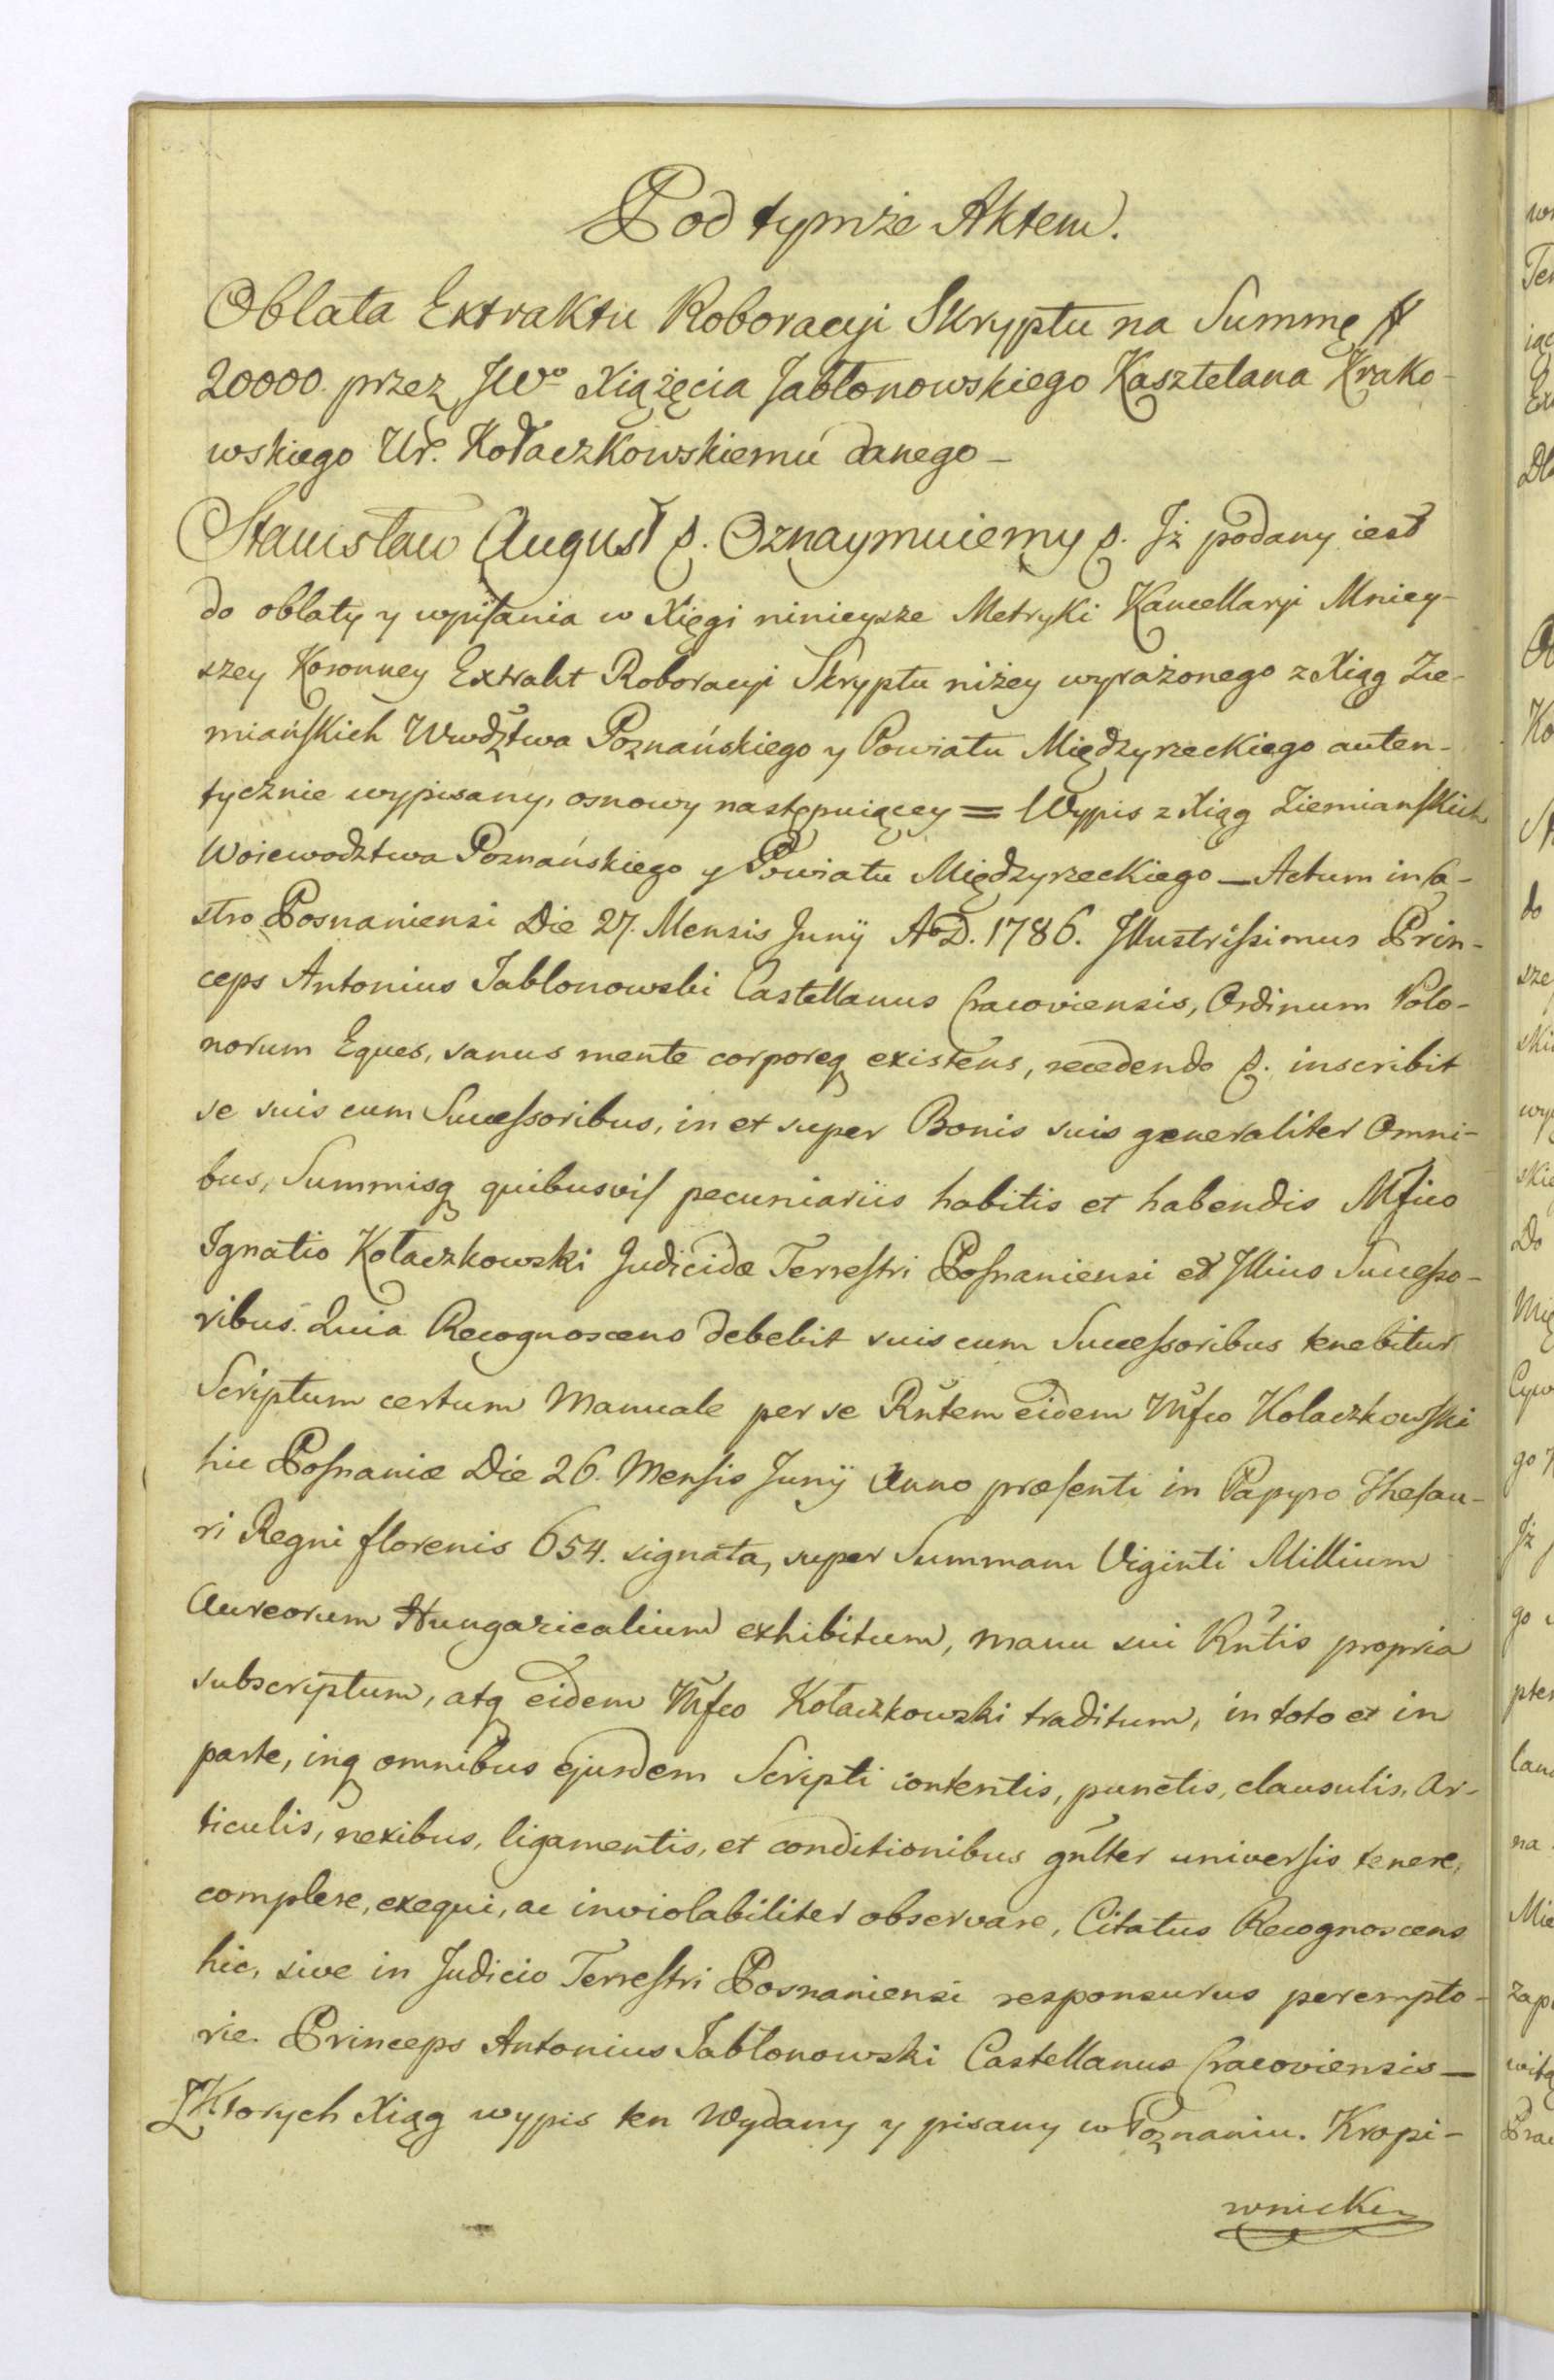 Pod tymże Aktem.
Oblata Extraktu Roboracyi Skryptu na Summę #
20000. przez JWo Xiążęcia Jabłonowskiego Kasztelana Krako-
wskiego Ur. Kołaczkowskiemu danego –
Stanisław August p. Oznaymuiemy p. Iż podany iest
do oblaty y wpisania w Xięgi ninieysze Metryki Kancellaryi Mniey-
szey Koronney Extrakt Roboracyi Skryptu niżey wyrażonego z Xiąg Zie-
miańskich Wwdztwa Poznańskiego y Powiatu Międzyrzeckiego auten-
tycznie wypisany, osnowy następuiącey = Wypis z Xiąg Ziemianskich
Woiewodztwa Poznańskiego y Powiatu Międzyrzeckiego – Actum in Ca-
stro Posnaniensi Die 27. Mensis Junÿ AoD. 1786. Illustrissimus Prin-
ceps Antonius Jabłonowski Castellanus Cracoviensis, Ordinum Polo-
norum Eques, sanus mente corporeq existens, recedendo p. inscribit
se suis cum Successoribus, in et super Bonis suis generaliter Omni-
bus, Summisq quibusvis pecuniariis habitis et habendis Mfico
Ignatio Kołaczkowski Judicidæ Terrestri Posnaniensi et Illius Successo-
ribus. Quia Recognoscens debebit suis cum Successoribus tenebitur
Scriptum certum Manuale per se Rñtem eidem Mfco Kolaczkowski
hic Posnaniæ Die 26. Mensis Junÿ Anno præsenti in Papyro Thesau-
ri Regni florenis 654. signata, super Summam Viginti Millium
Aureorum Hungaricalium exhibitum, manu sui Rñtis propria
subscriptum, atq eidem Mfco Kołaczkowski traditum, in toto et in
parte, inq omnibus ejusdem Scripti contentis, punctis, clausulis, Ar-
ticulis, nexibus, ligamentis, et conditionibus gñlter universis tenere,
complere, exequi, ac inviolabiliter observare, Citatus Recognoscens
hic, sive in Judicio Terrestri Posnaniensi responsurus perempto-
rie. Princeps Antonius Jabłonowski Castellanus Cracoviensis –
Z Ktorych Xiąg wypis ten Wydany y pisany w Poznaniu. Kropi-
wnicki